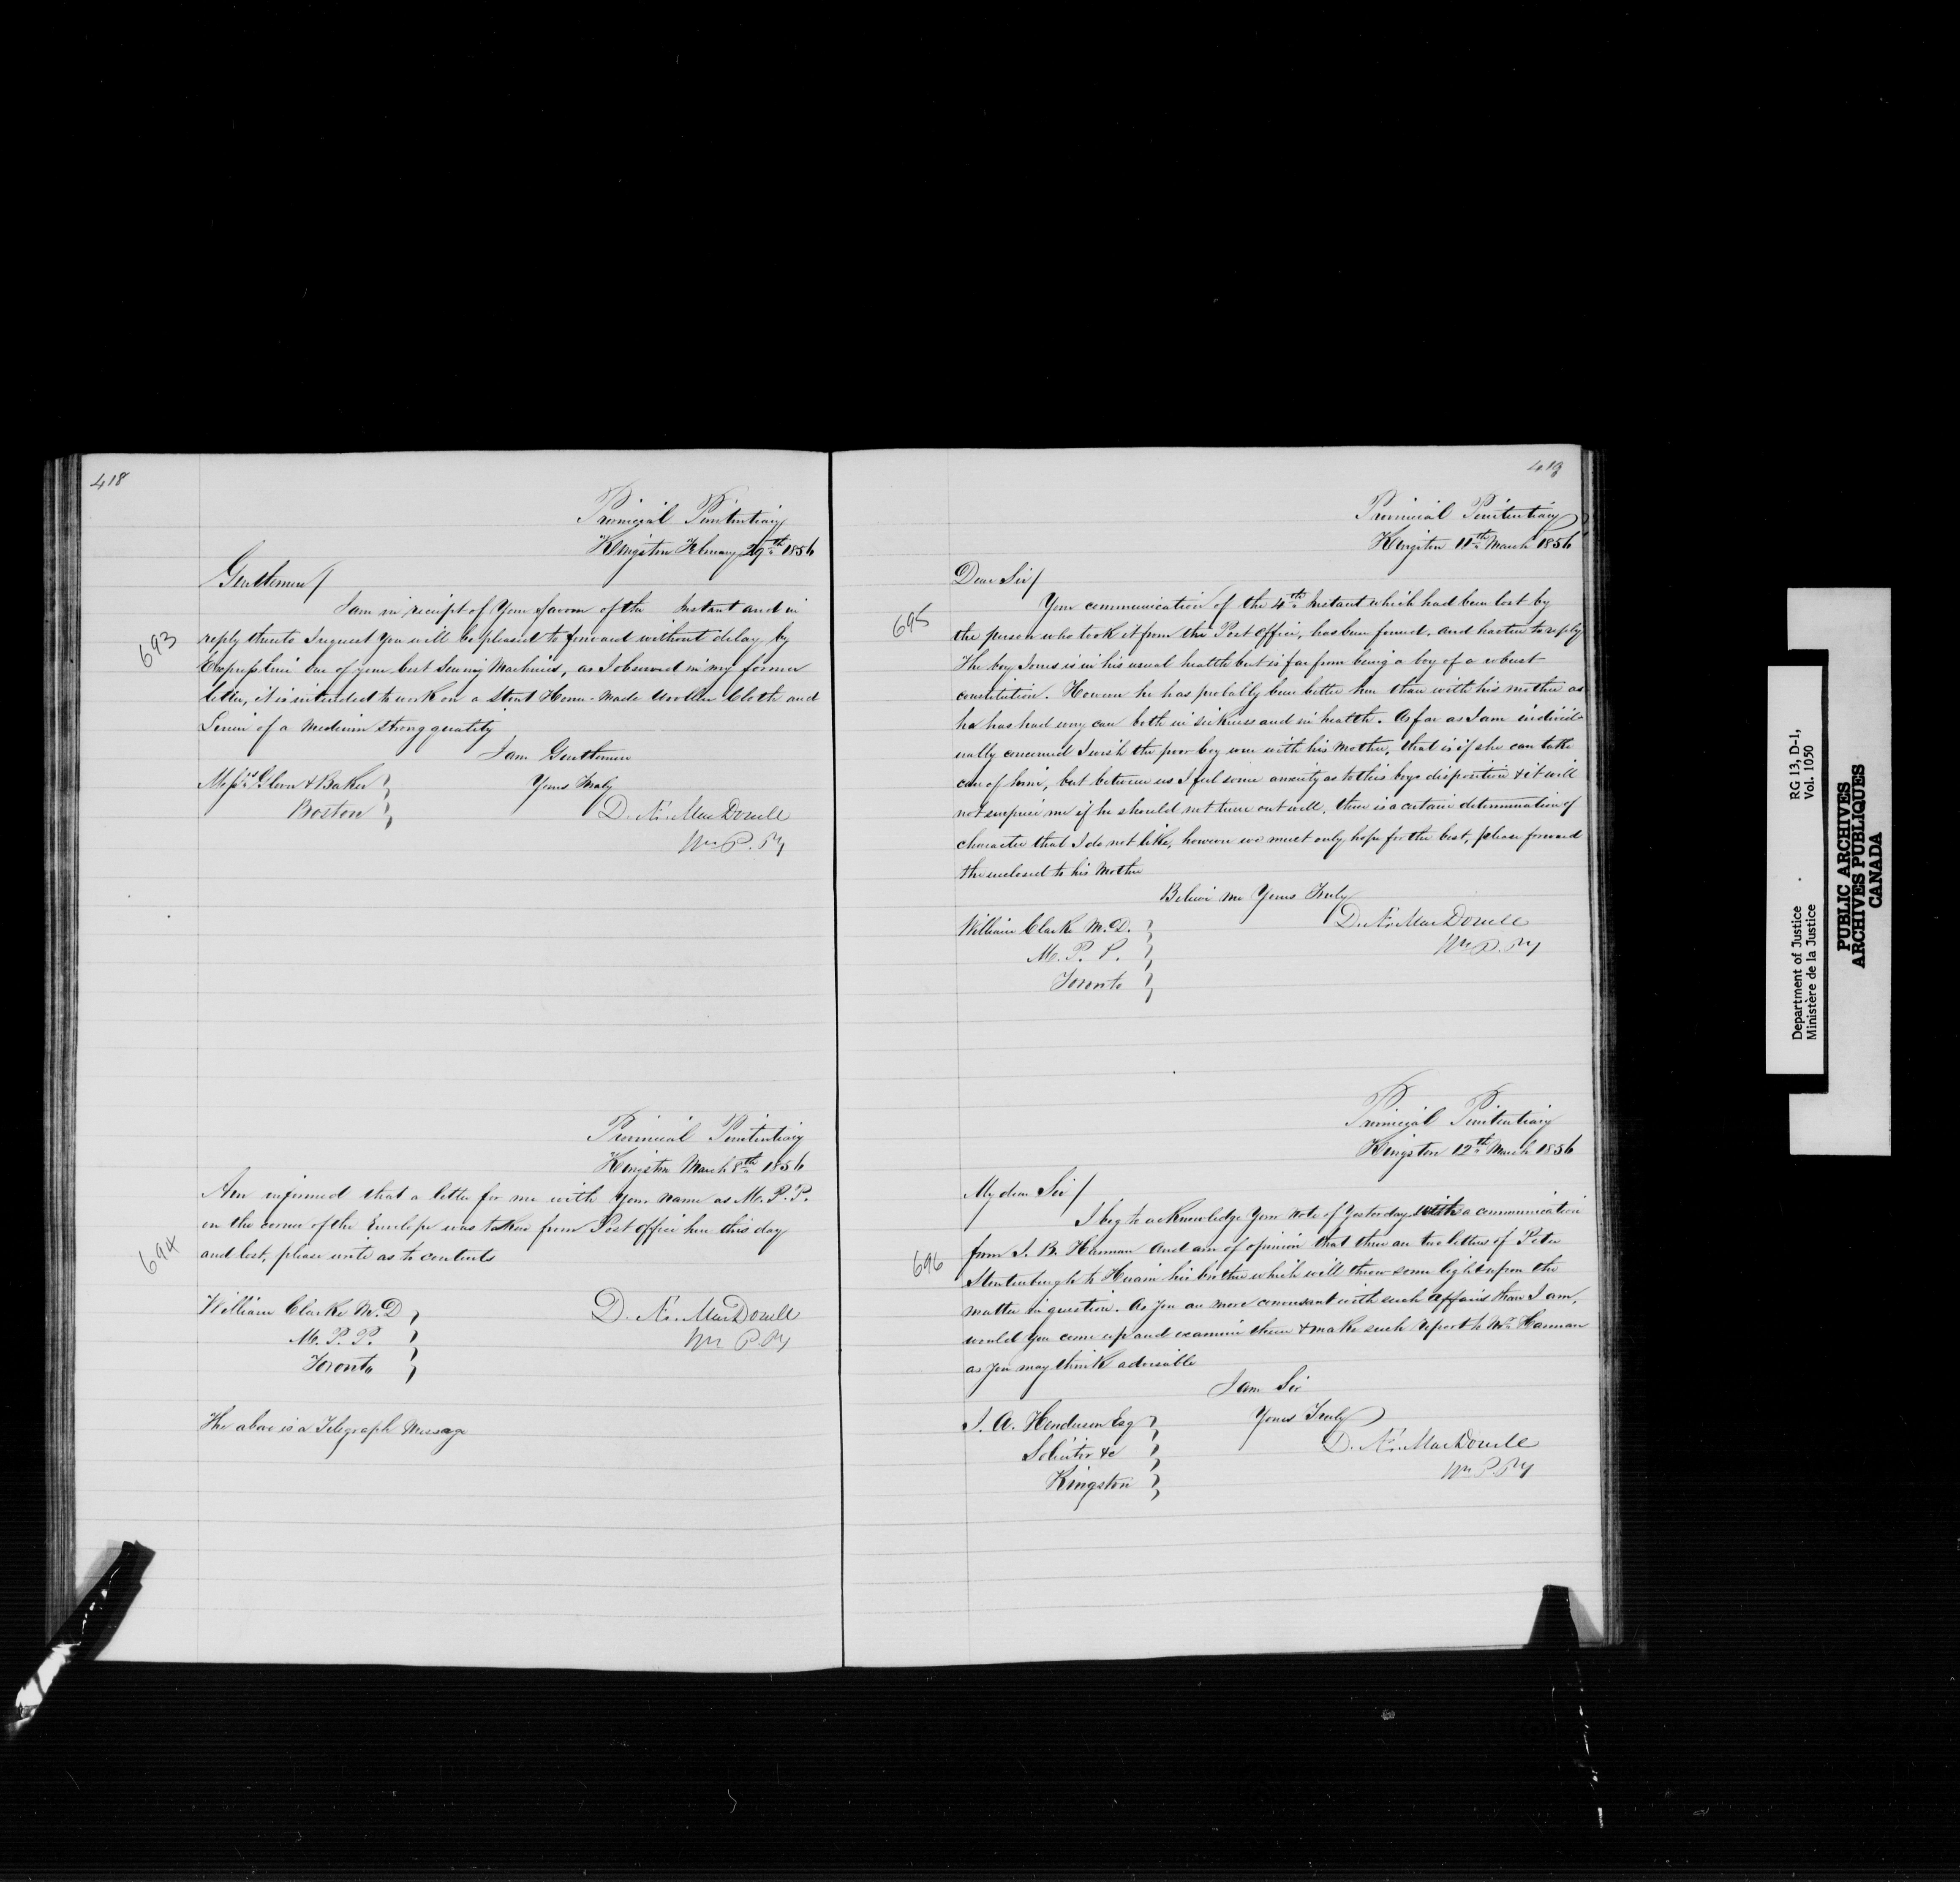 418
Provincial Penitentiary
Kingston February 29th 1856
Gentlemen/
693
I am in receipt of Your favour of the Instant and in
reply thereto I request You will be pleased to forward without delay by
Express line one of your best Sewing Machines, as I observed in my former
letter, it is intended to work on a Stout Home-Made Woollen Cloth and
Linen of a Medium Strong quality
I am Gentlemen
Yours Truly
Messrs Glover & Baker
Boston
D. Æ. MacDonell
Wn P. Py
Provincial Penitentiary
Kingston March 8th 1856
694
Am informed that a letter for me with Your Name as M. P. P.
on the corner of the Envelope was taken from Post Office here this day
and lost, please write as to contents
William Clarke M. D
M. P. P.
Toronto
D. Æ. MacDonell
Wn P. Py
The above is a Telegraph Message
419
Provincial Penitentiary
Kingston 11th March 1856
Dear Sir/
695
Your communication of the 4th Instant which had been lost by
the person who took it from the Post Office, has been found. And hasten to reply
The boy Jones is in his usual health but is far from being a boy of a robust
constitution. However he has probably been better here than with his mother as
he has had every care both in sickness and in health. As far as I am individ-
ually concerned I wish the poor boy were with his Mother, that is if she can take
care of him, but between us I feel some anxiety as to this boys disposition & it will
not surprise me if he should not turn out well, there is a certain determination of
character that I do not like, however we must only hope for the best, please forward
the enclosed to his Mother
Believe me Yours Truly
William Clarke M. D.
M. P. P.
Toronto
D. Æ. MacDonell
Wn P. Py
Provincial Penitentiary
Kingston 12th March 1856
My dear Sir/
696
I beg to acknowledge Your Note of Yesterday with a communication
from J. B. Hannan And am of opinion that there are two letters of Peter
to Hiram his brother which will throw some light upon the
matter in question. As you are more conversant with such affairs than I am,
would you come up and examine them & make such report to Mr Hannan
as you may think advisable
I am Sir
Yours Truly
J. A. Henderson Esq
Solicitor &c
Kingston
D. Æ. MacDonell
Wn P. Py
Department of Justice
Ministère de la Justice
RG 13, D-1,
Vol. 1050
PUBLIC ARCHIVES
ARCHIVES PUBLIQUES
CANADA